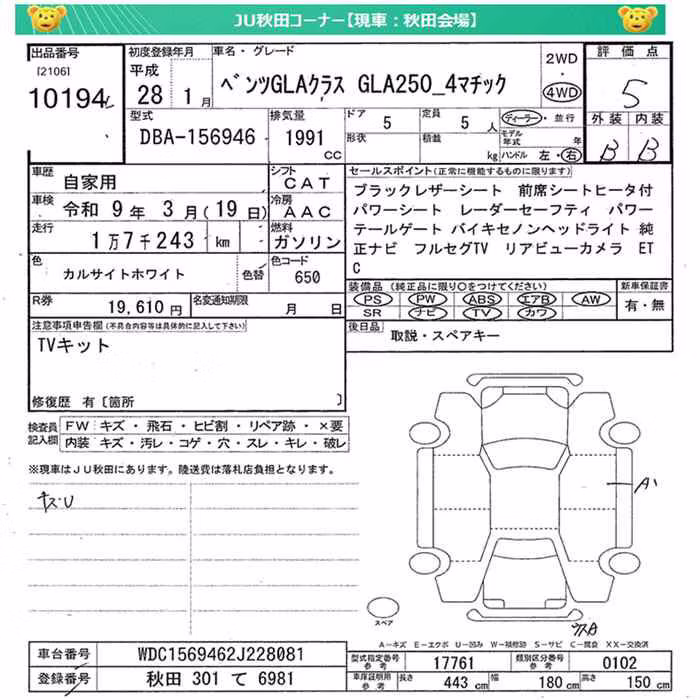 JU秋田コーナー【現車：秋田会場】
出品番号
[2106]
10194
初度登録年月
平成
28 1月
車名・グレード
ベンツGLAクラス GLA250_4マチック
2WD
・
4WD
評価点
5
外装 内装
B B
型式
DBA-156946
排気量
1991
cc
ドア
5
定員
5人
形状
積載
kg
ディーラー・並行
モデル年式 年
ハンドル 左・右
車歴
自家用
シフト
CAT
車検
令和 9年 3月(19日)
冷房
AAC
走行
1万7千243 km
燃料
ガソリン
色
カルサイトホワイト
色替
色コード
650
R券
19,610円
名変通知期限
月 日
セールスポイント(正常に機能するものに限ります)
ブラックレザーシート 前席シートヒータ付
パワーシート レーダーセーフティ パワー
テールゲート バイキセノンヘッドライト 純
正ナビ フルセグTV リアビューカメラ ET
C
装備品(純正品に限り○をつけてください)
PS PW ABS エアB AW
SR ナビ TV カワ
新車保証書
有・無
後日品
取説・スペアキー
注意事項申告欄(不具合内容等は具体的に記入して下さい)
TVキット
修復歴 有〔箇所 〕
検査員記入欄
FW キズ・飛石・ヒビ割・リペア跡・×要
内装 キズ・汚レ・コゲ・穴・スレ・キレ・破レ
※現車はJU秋田にあります。陸送費は落札店負担となります。
キズ・U
A'
スペア
A
A－キズ E－エクボ U－凹み W－補修跡 S－サビ C－腐食 XX－交換済
車台番号
WDC1569462J228081
登録番号
秋田 301 て 6981
型式指定番号
参考
17761
類別区分番号
参考
0102
車庫証明用
参考
長さ 443 cm
幅 180 cm
高さ 150 cm